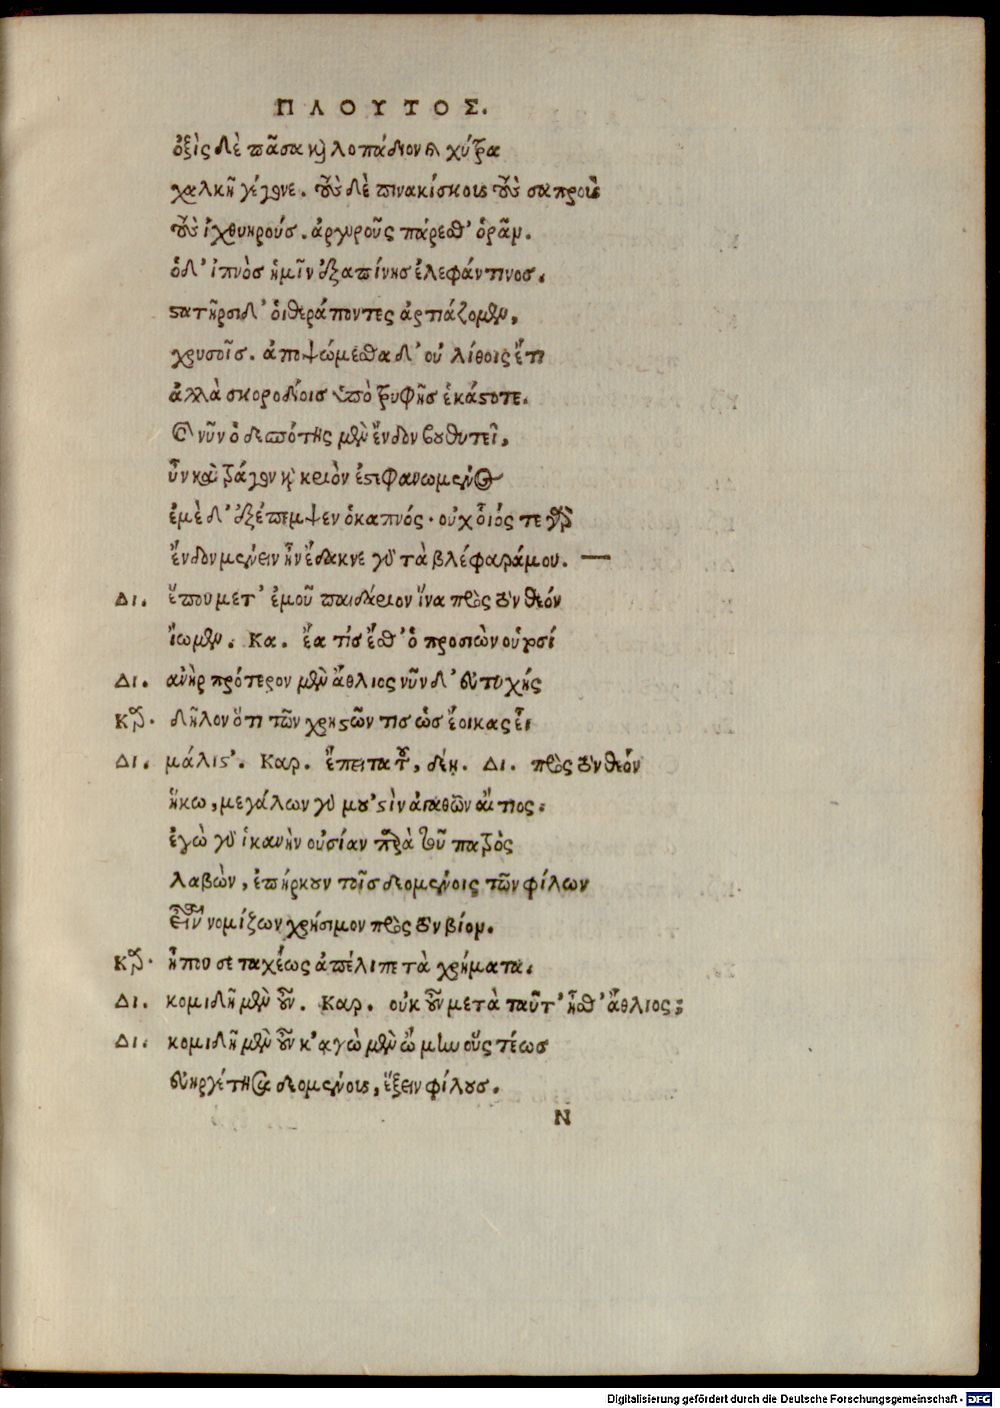 ΠΛΟΥΤΟΣ.
ὀξὶς δὲ πᾶσα καὶ λοπάδιον καὶ χύτρα
χαλκῆ γέγονε. τοὺς δὲ πινακίσκους τοὺς σαπροὺς
τοὺς ἰχθυηρούς. ἀργυροῦς πάρεσθ' ὁρᾶν.
ὁ δ' ἰπνὸς ἡμῖν ἐξαπίνης ἐλεφάντινος.
στατῆρσι δ' οἱ θεράποντες ἀρτιάζομεν,
χρυσοῖς. ἀποψώμεσθα δ' οὐ λίθοις ἔτι
ἀλλὰ σκοροδίοις ὑπὸ τρυφῆς ἑκάστοτε.
καὶ νῦν ὁ δεσπότης μὲν ἔνδον βουθυτεῖ,
ὗν καὶ τράγον καὶ κριὸν ἐστεφανωμένος
ἐμὲ δ' ἐξέπεμψεν ὁ καπνός. οὐχ οἷός τε γὰρ
ἔνδον μένειν ἦν ἔδακνε γὰρ τὰ βλέφαρά μου. —
Δι. ἕπου μετ' ἐμοῦ παιδάριον ἵνα πρὸς τὸν θεόν
ἴωμεν. Κα. ἔα τίς ἔσθ' ὁ προσιὼν οὑτοσί
Δι. ἀνὴρ πρότερον μὲν ἄθλιος νῦν δ' εὐτυχής
Καρ. δῆλον ὅτι τῶν χρηστῶν τις ὡς ἔοικας εἶ
Δι. μάλιστ'. Καρ. ἔπειτα τοῦ, δέῃ. Δι. πρὸς τὸν θεὸν
ἥκω, μεγάλων γὰρ μοὐστὶν ἀγαθῶν αἴτιος.
ἐγὼ γὰρ ἱκανὴν οὐσίαν παρὰ τοῦ πατρὸς
λαβὼν, ἐπήρκουν τοῖς δεομένοις τῶν φίλων
εἶναι νομίζων χρήσιμον πρὸς τὸν βίον.
Καρ. ἦπου σε ταχέως ἀπέλιπε τὰ χρήματα.
Δι. κομιδῆ μὲν οὖν. Καρ. οὐκ οὖν μετὰ ταῦτ' ἦσθ' ἄθλιος;
Δι. κομιδῆ μὲν οὖν κ'ἀγὼ μὲν ᾤμην οὓς τέως
εὐηργέτησα δεομένους, ἕξειν φίλους.
N
Digitalisierung gefördert durch die Deutsche Forschungsgemeinschaft - DFG